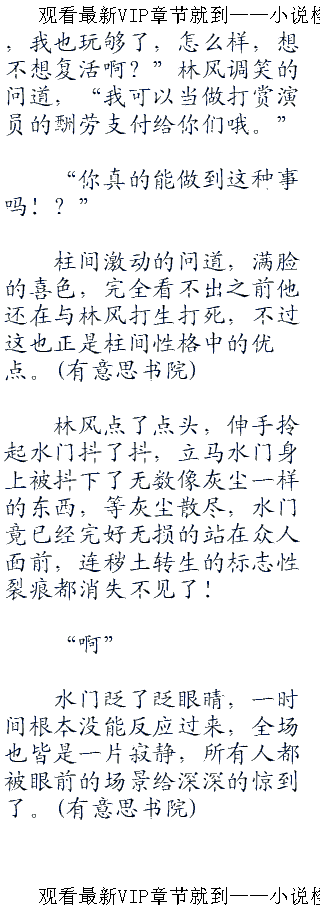 观看最新VIP章节就到——小说检
，我也玩够了，怎么样，想
不想复活啊？”林风调笑的
问道，“我可以当做打赏演
员的酬劳支付给你们哦。”
“你真的能做到这种事
吗！？”
柱间激动的问道，满脸
的喜色，完全看不出之前他
还在与林风打生打死，不过
这也正是柱间性格中的优
点。(有意思书院)
林风点了点头，伸手拎
起水门抖了抖，立马水门身
上被抖下了无数像灰尘一样
的东西，等灰尘散尽，水门
竟已经完好无损的站在众人
面前，连秽土转生的标志性
裂痕都消失不见了！
“啊”
水门眨了眨眼睛，一时
间根本没能反应过来，全场
也皆是一片寂静，所有人都
被眼前的场景给深深的惊到
了。(有意思书院)
观看最新VIP章节就到——小说检